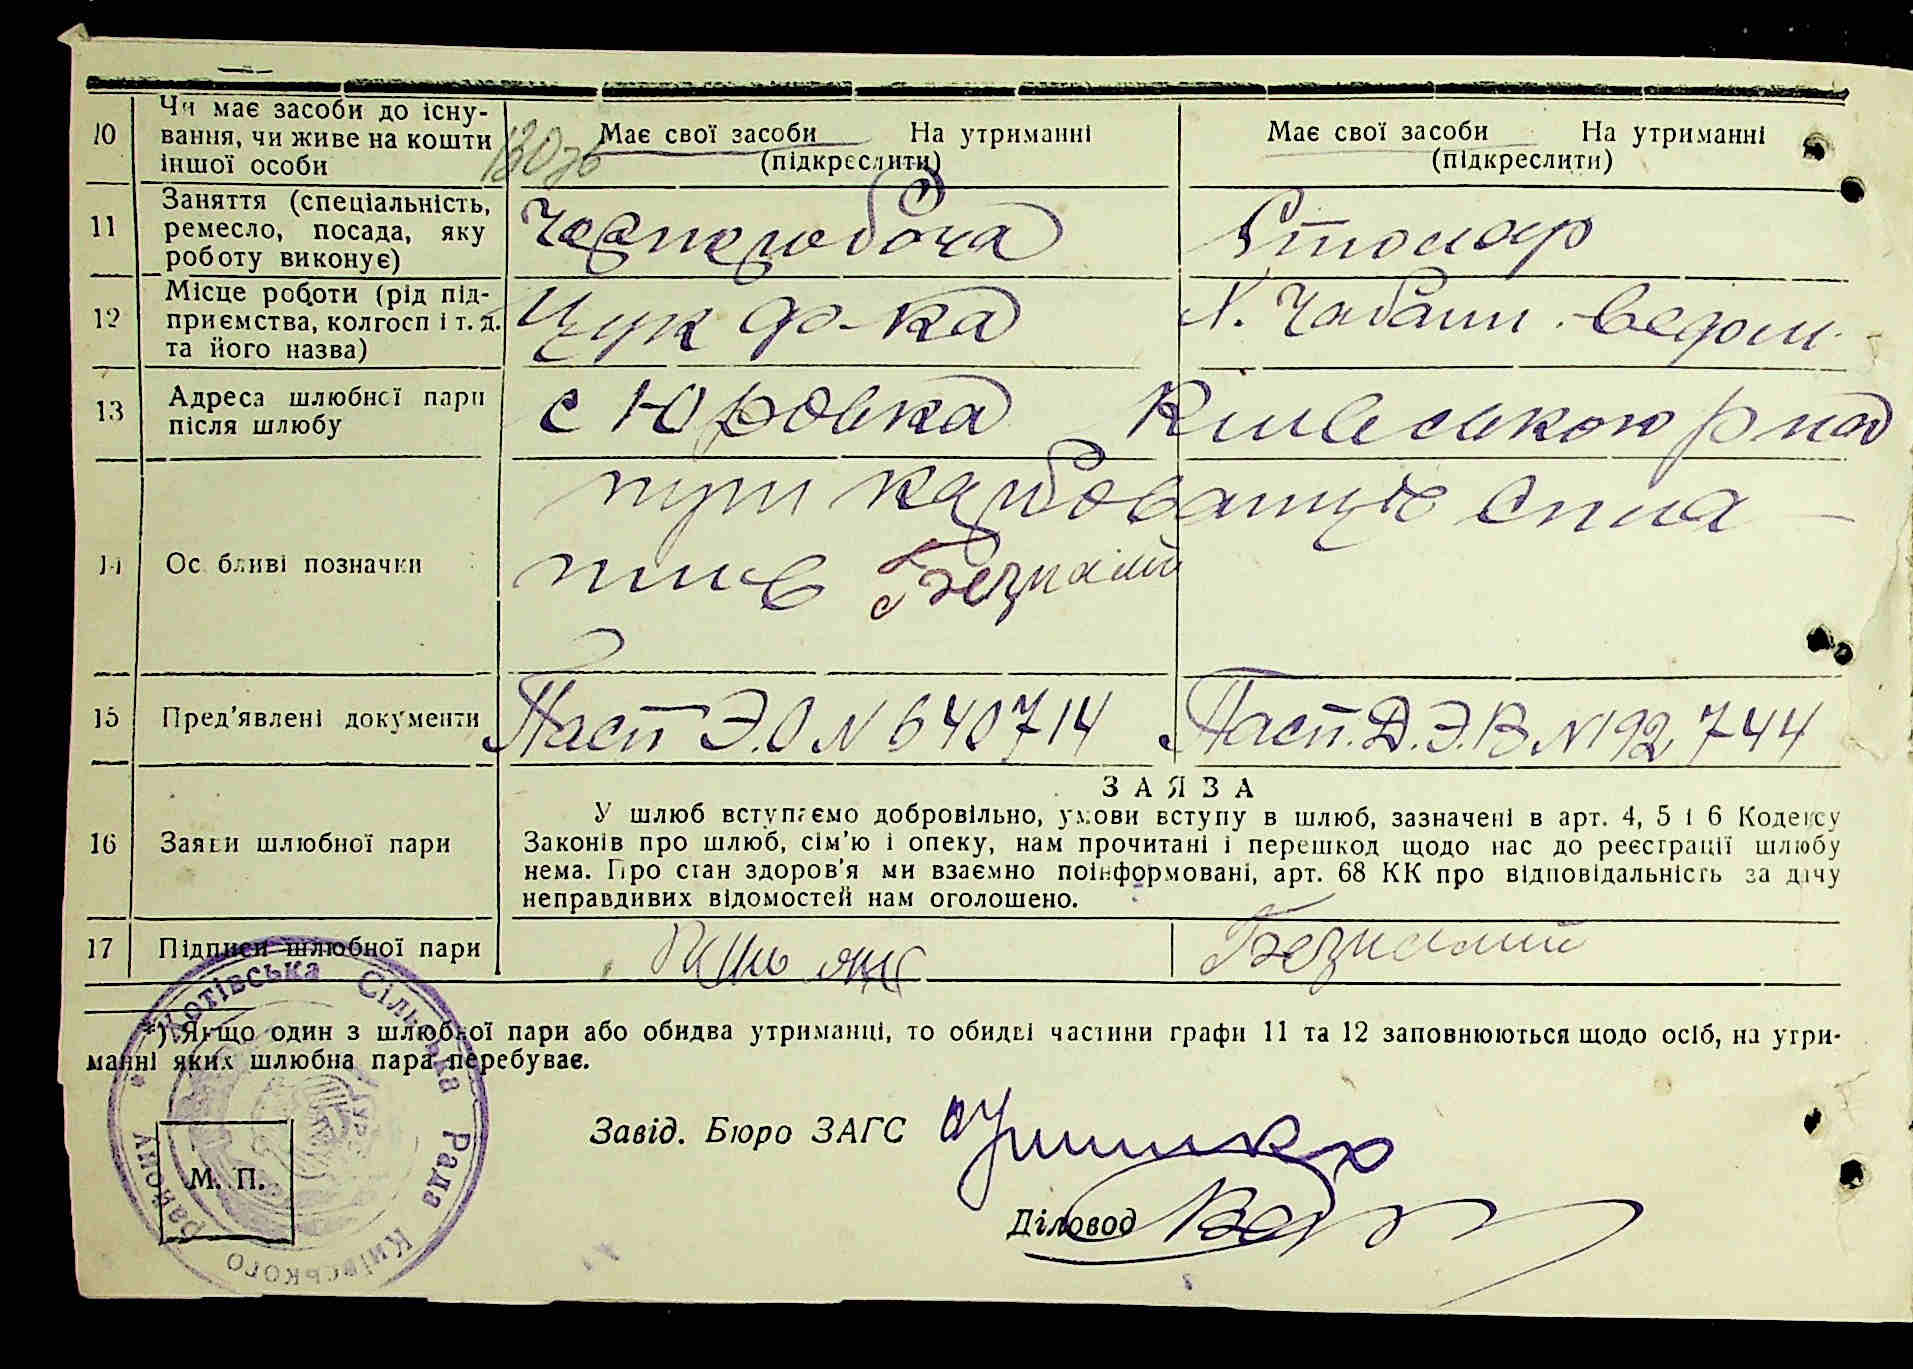 10 Чи має засоби до існу-
вання, чи живе на кошти
іншої особи
Має свої засоби На утриманні
(підкреслити)
Має свої засоби На утриманні
(підкреслити)
11 Заняття (спеціальність,
ремесло, посада, яку
роботу виконує)
Чорноробоча
Столяр
12 Місце роботи (рід під-
приємства, колгосп і т. д.
та його назва)
Цук ф-ка
Х. Чабани
13 Адреса шлюбної пари
після шлюбу
с Юровка Київського р над
14 Ос бливі позначки
карбованців спла
тив Безпалий
15 Пред'явлені документи
Пасп Э.О N 640714
Пасп. Д.Э.В N 192744
16 Заяви шлюбної пари
ЗАЯВА
У шлюб вступаємо добровільно, умови вступу в шлюб, зазначені в арт. 4, 5 і 6 Кодексу
Законів про шлюб, сім'ю і опеку, нам прочитані і перешкод щодо нас до реєстрації шлюбу
нема. Про стан здоров'я ми взаємно поінформовані, арт. 68 КК про відповідальність за дачу
неправдивих відомостей нам оголошено.
17 Підписи шлюбної пари
Безпалий
*) Якщо один з шлюбної пари або обидва утриманці, то обидві частини графи 11 та 12 заповнюються щодо осіб, на утри-
манні яких шлюбна пара перебуває.
Завід. Бюро ЗАГС
Діловод
М. П.
Сільська Рада Київського району